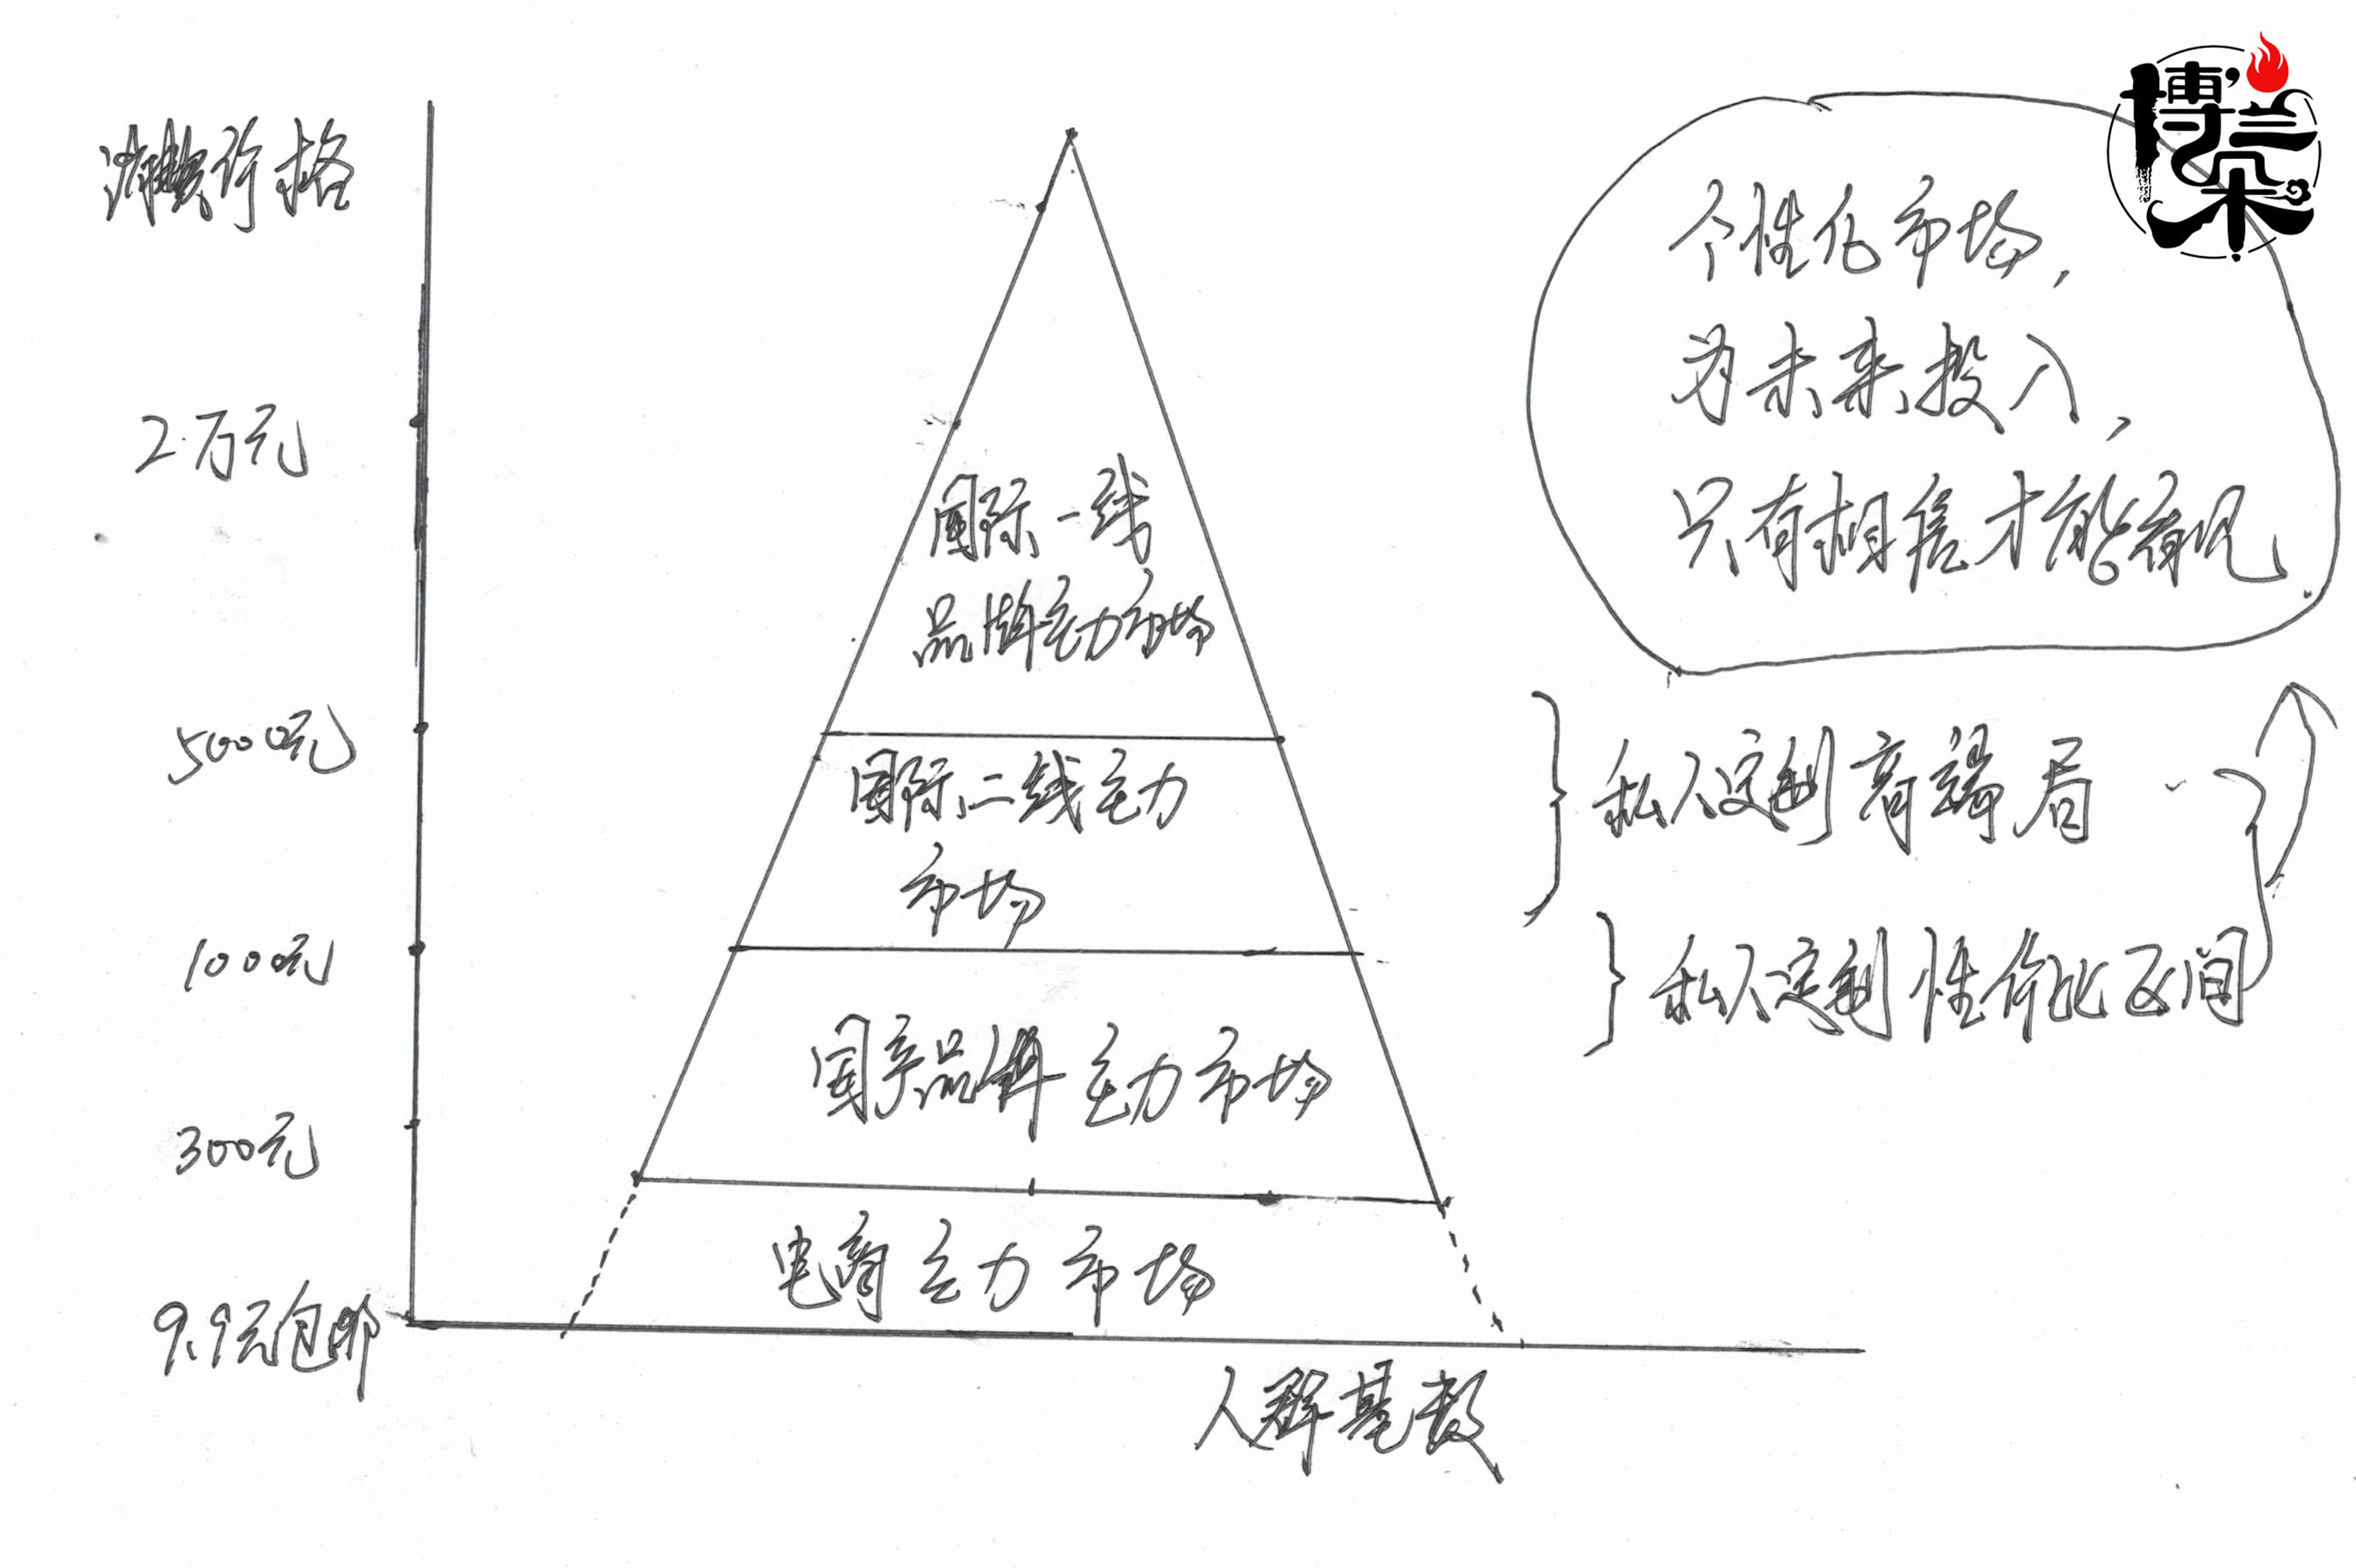 博兰朵
消费价格
个性化市场,
为未来投入,
只有相信才能看见.
2万元
国际一线
品牌主力市场
5000元
国际二线主力
市场
私人定制高端局
1000元
私人定制性价比区间
国产品牌主力市场
300元
电商主力市场
9.9元包邮
人群基数